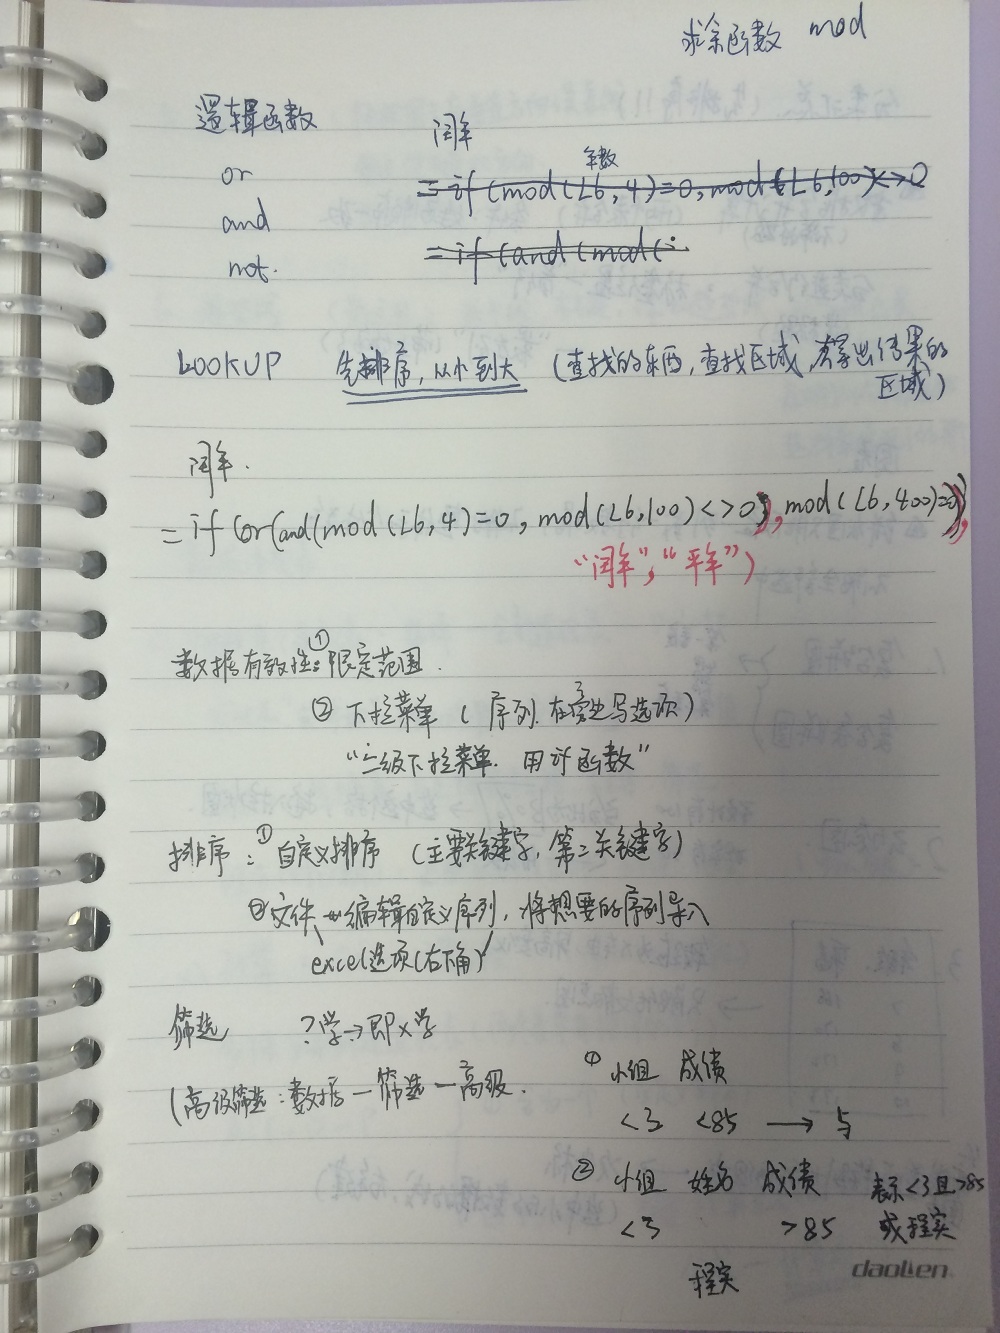 求余函数 mod
逻辑函数
or
and
not.
闰年
年数
=if(mod(L6,4)=0,mod(L6,100)<>0
=if(and(mod(
LOOKUP 先排序,从小到大 (查找的东西,查找区域,若拿出结果的
区域)
闰年.
=if(or(and(mod(L6,4)=0,mod(L6,100)<>0),mod(L6,400)=0),
"闰年","平年")
数据有效性:①限定范围.
②下拉菜单(序列.在旁边写选项)
"二级下拉菜单.用if函数"
排序:①自定义排序(主要关键字,第二关键字)
②文件—编辑自定义序列,将想要的序列导入
excel选项(右下角)
筛选 ?学→即×学
(高级筛选:数据—筛选—高级.
① 小组 成绩
<3 <85 → 与
② 小组 姓名 成绩 表示<3且>85
<3 >85 或程实
程实
daolien